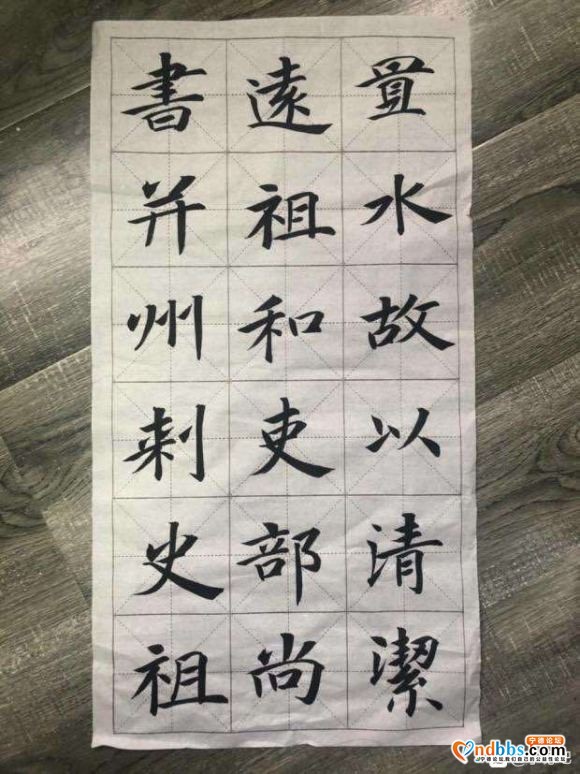 置水故以清潔
遠祖和吏部尚
書并州刺史祖
宁德论坛
ndbbs.com